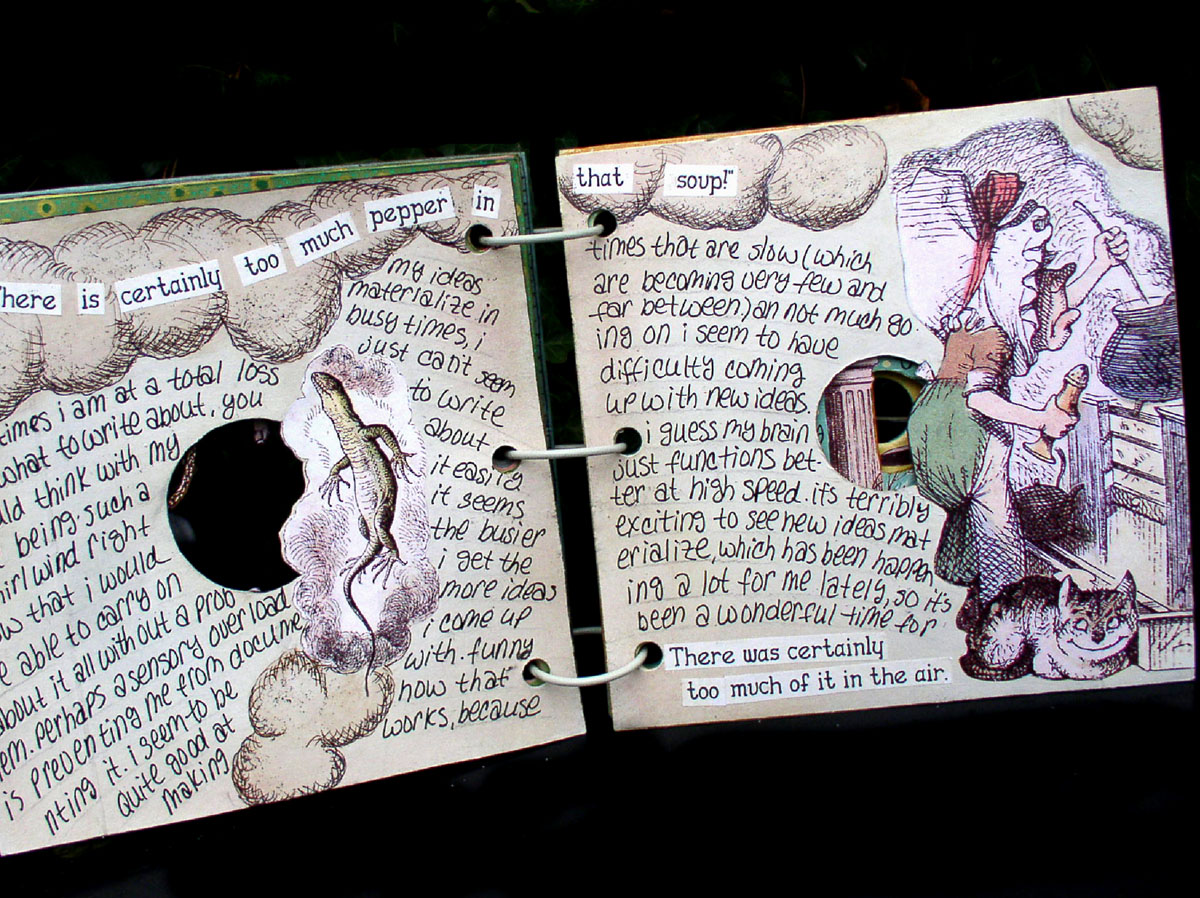 here is certainly too much pepper in
times i am at a total loss
what to write about, you
uld think with my
being such a
hirlwind right
w that i would
e able to carry on
about it all without a prob
em. perhaps a sensory overload
is preventing me from docume
nting it. i seem to be
quite good at
making
my ideas
materialize in
busy times, i
just can't seem
to write
about
it easily
it seems
the busier
i get the
more ideas
i come up
with. funny
how that
works, because
that soup!"
times that are slow (which
are becoming very few and
far between) an not much go
ing on i seem to have
difficulty coming
up with new ideas.
i guess my brain
just functions bet-
ter at high speed. its terribly
exciting to see new ideas mat
erialize, which has been happen
ing a lot for me lately, so it's
been a wonderful time for
There was certainly
too much of it in the air.